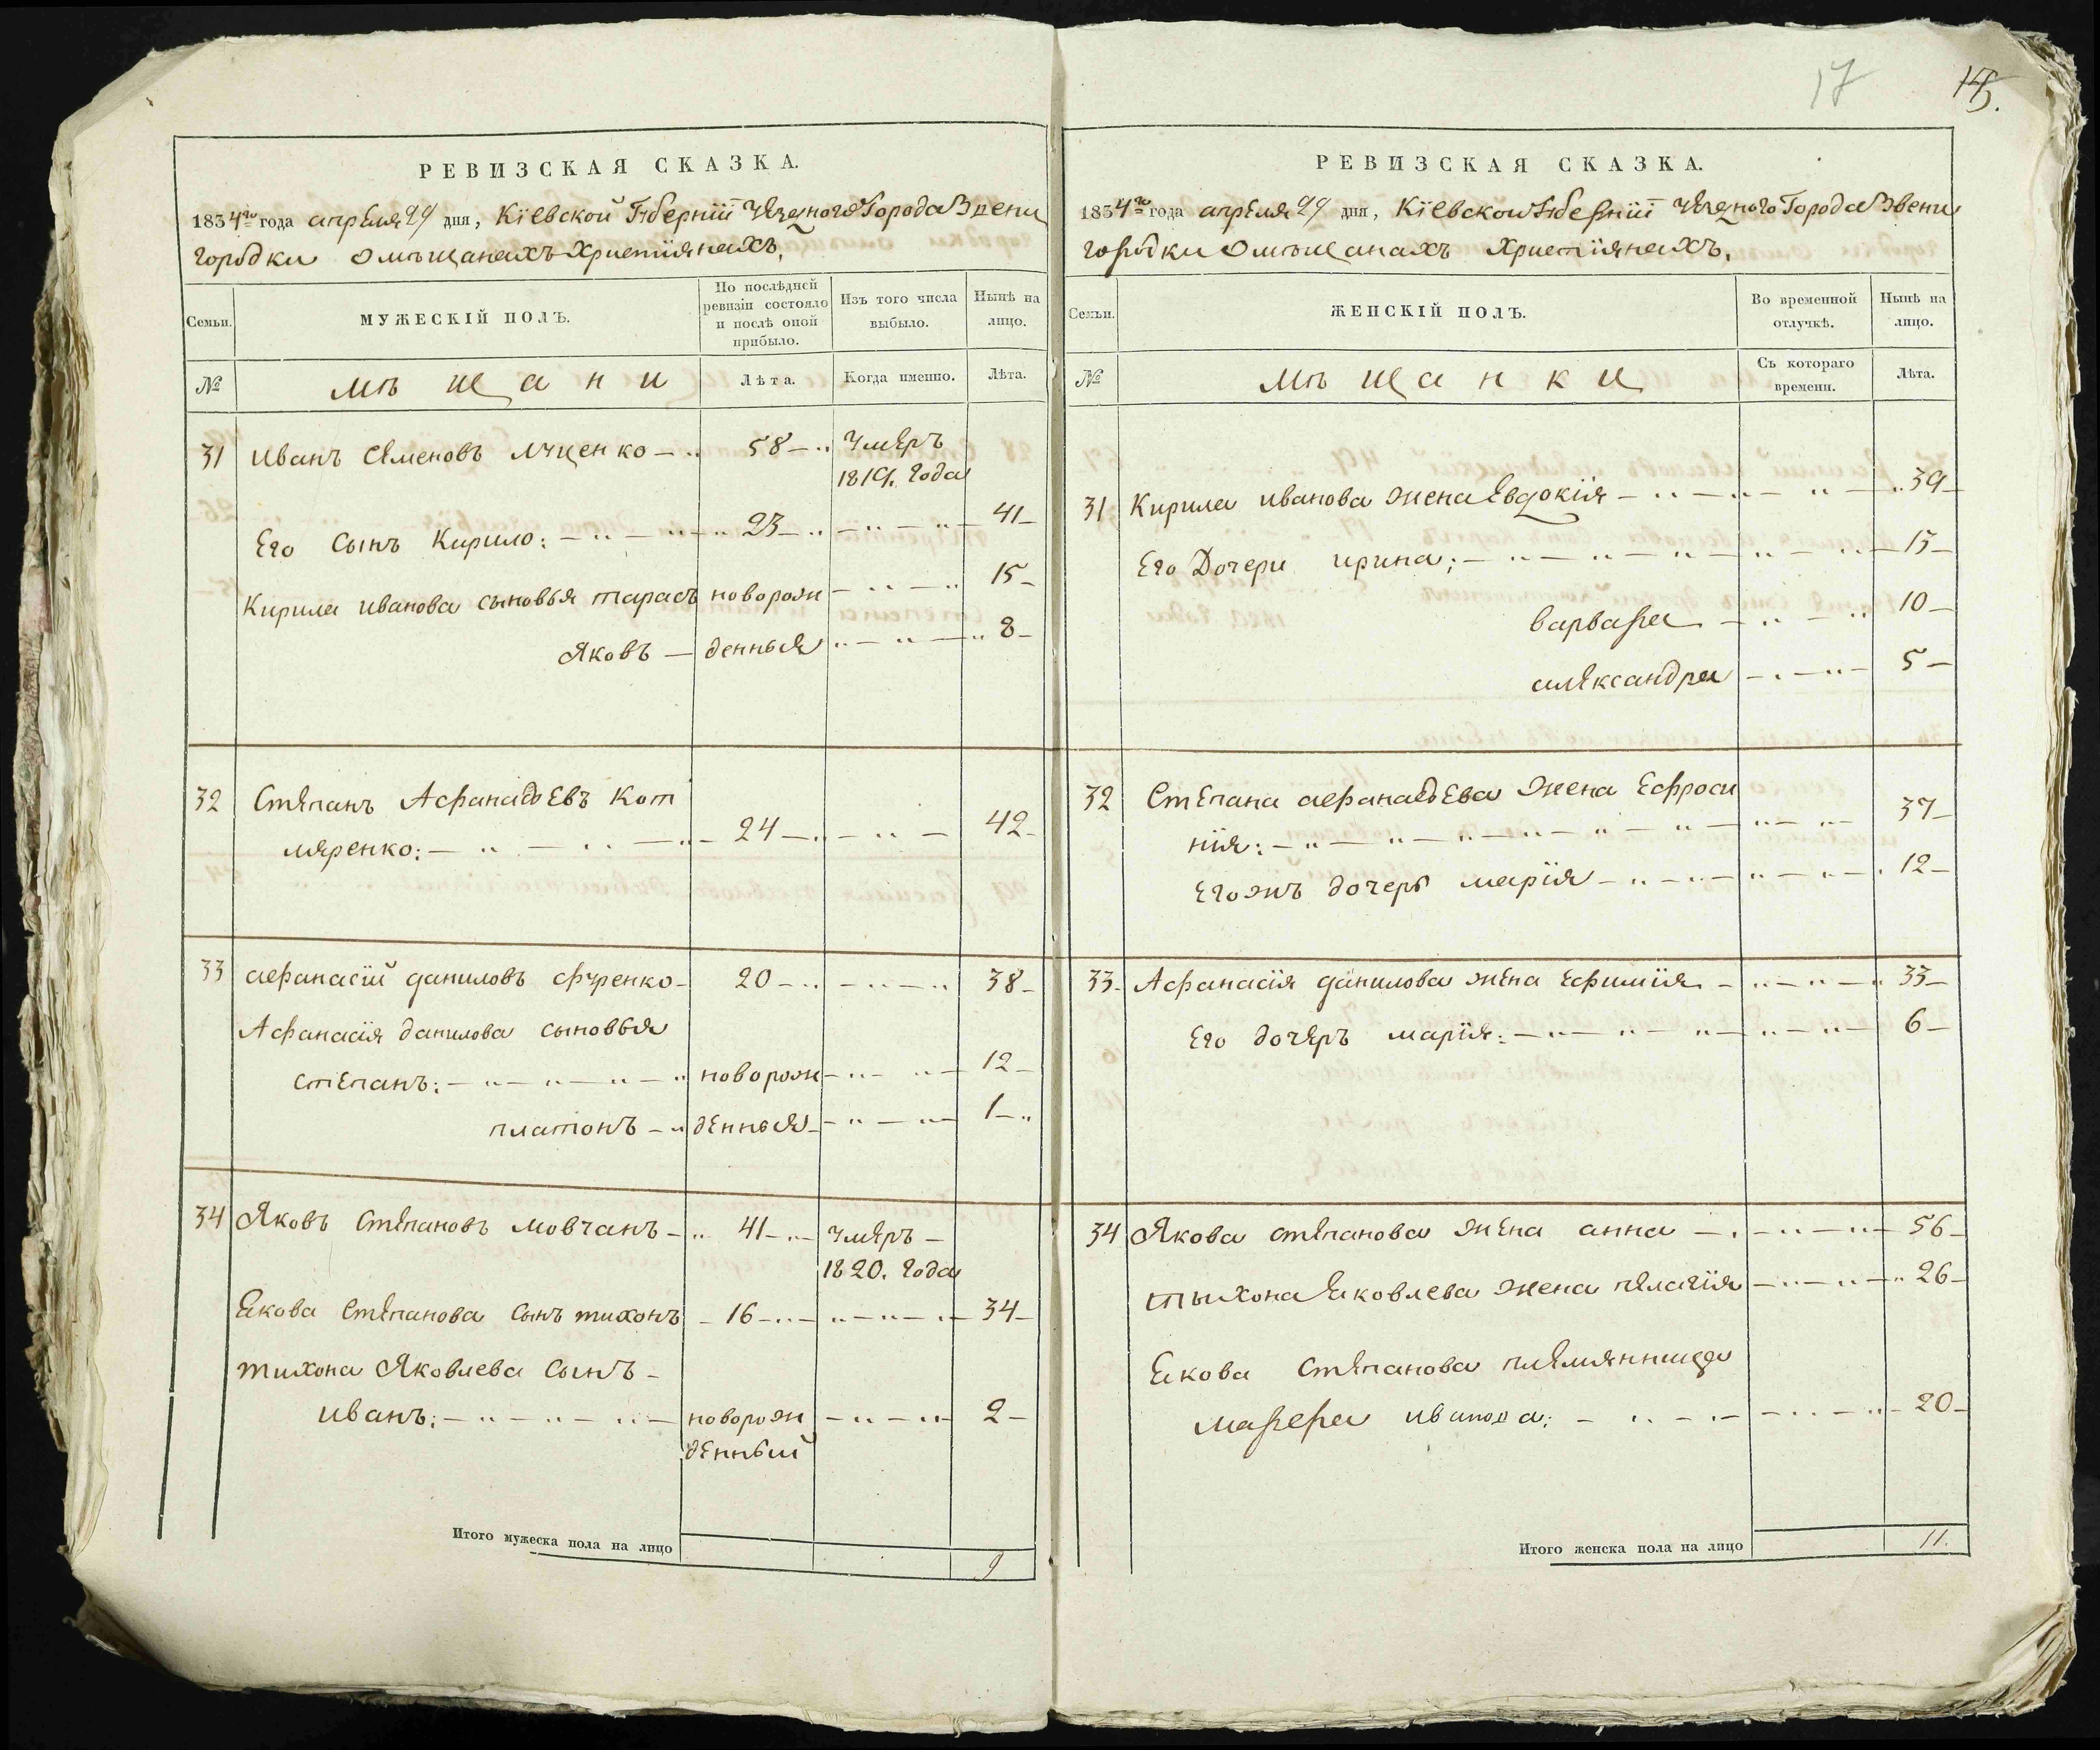 17
15.
РЕВИЗСКАЯ СКАЗКА.
1834го года апреля 29 дня, Кіевской Губерніи Уезного Города Звени
городки о мѣщанахъ христіянахъ.
Семьи.
МУЖЕСКІЙ ПОЛЪ.
По послѣдней ревизіи состояло и послѣ оной прибыло.
Изъ того числа выбыло.
Нынѣ на лицо.
№
мѣщани
Лѣта.
Когда именно.
Лѣта.
31 Иванъ Семеновъ Луценко 58 умеръ
1819. года
Его сынъ Кирило: 23 41
Кирила Иванова сыновья тарасъ новорож 15
Яковъ денныя 8
32 Степанъ Афанасьевъ Кот
ляренко: 24 42
33 афанасій даниловъ Фуренко 20 38
Афанасія данилова сыновья
степанъ: новорож 12
платонъ денныя 1
34 Яковъ Степановъ Мовчанъ 41 умеръ
1820. года
Якова Степанова сынъ тихонъ 16 34
тихона Яковлева сынъ
иванъ: новорож 2
денный
Итого мужеска пола на лицо 9
РЕВИЗСКАЯ СКАЗКА.
1834го года апреля 29 дня, Кіевской Губерніи Уезного Города Звени
городки о мѣщанахъ христіянахъ.
Семьи.
ЖЕНСКІЙ ПОЛЪ.
Во временной отлучкѣ.
Нынѣ на лицо.
№
мѣщанки
Съ котораго времени.
Лѣта.
31 Кирила иванова жена Евдокія 39
Его Дочери ирина; 15
варвара 10
александра 5
32 Степана афанасьева жена Ефроси
нія: 37
Его жъ дочерь марія 12
33 Афанасія данилова жена Ефимія 33
Его дочеръ марія: 6
34 Якова степанова жена анна 56
тыхона Яковлева жена пелагія 26
Якова Степанова племянница
марфа иванова: 20
Итого женска пола на лицо 11.